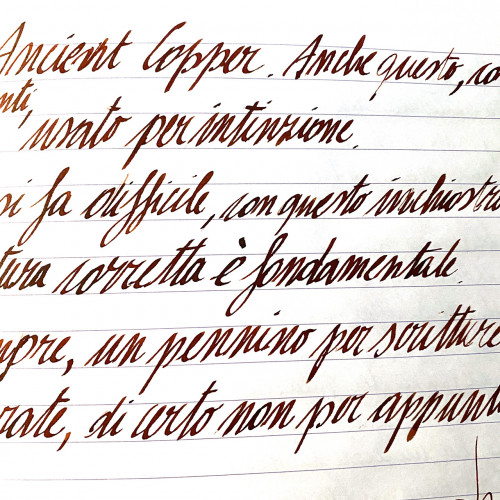 Ancient Copper. Anche questo, co
nti,
usato per intinzione.
si fa difficile, con questo inchiostro
tura corretta è fondamentale.
mpre, un pennino per scritture
rate, di certo non per appunti